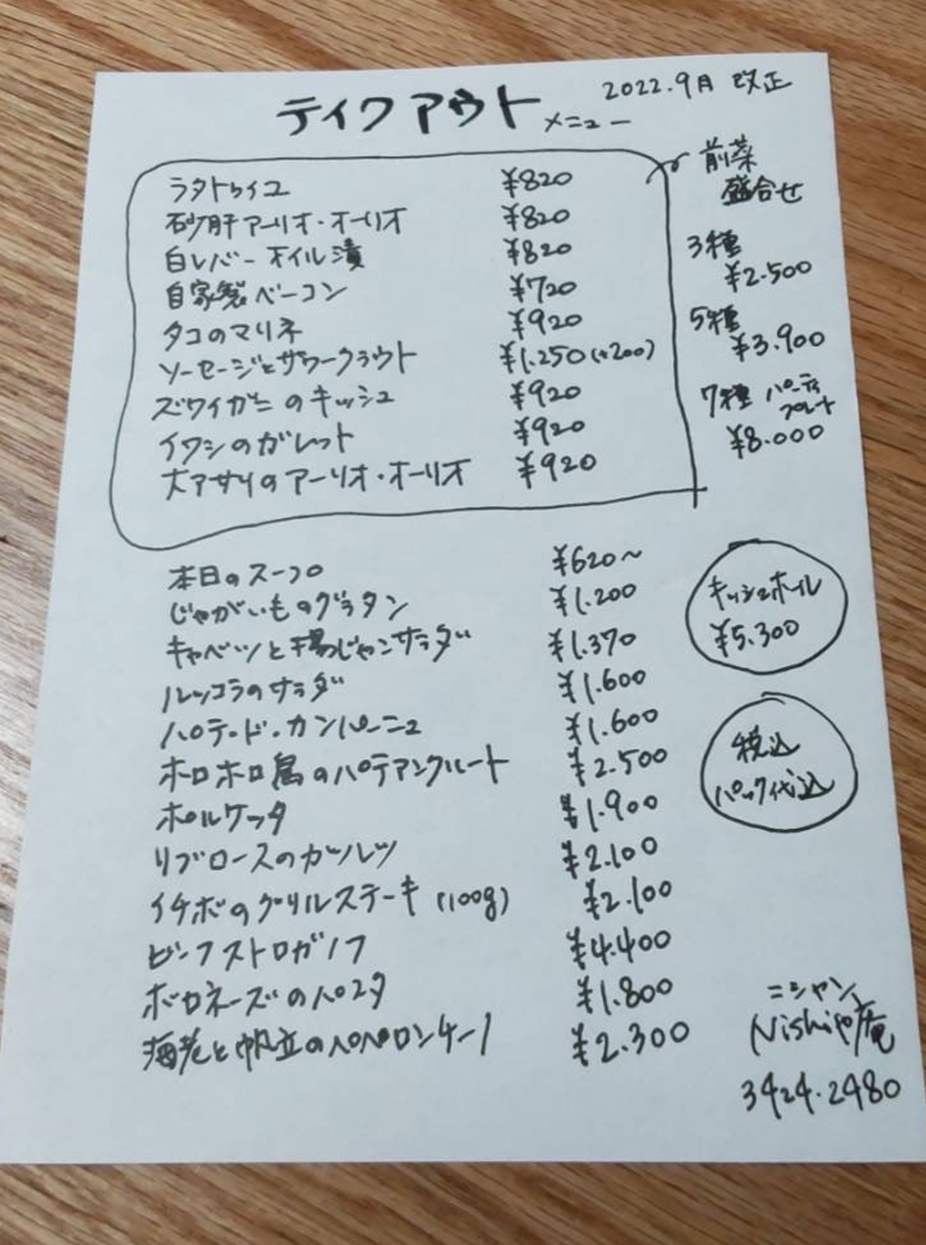 テイクアウト メニュー 2022.9月 改正
ラタトゥイユ ¥820
砂肝アーリオ・オーリオ ¥820
白レバーオイル漬 ¥820
自家製ベーコン ¥720
タコのマリネ ¥920
ソーセージとザワークラウト ¥1.250(+200)
ズワイガニのキッシュ ¥920
イワシのガレット ¥920
大アサリのアーリオ・オーリオ ¥920
前菜
盛合せ
3種
¥2.500
5種
¥3.900
7種 パーティ
プレート
¥8.000
本日のスープ ¥620~
じゃがいものグラタン ¥1.200
キャベツと揚じゃこサラダ ¥1.370
ルッコラのサラダ ¥1.600
パテ・ド・カンパーニュ ¥1.600
ホロホロ鳥のパテアンクルート ¥2.500
ポルケッタ ¥1.900
リブロースのカツレツ ¥2.100
イチボのグリルステーキ (100g) ¥2.100
ビーフストロガノフ ¥4.400
ボロネーズのパスタ ¥1.800
海老と帆立のペペロンチーノ ¥2.300
キッシュホール
¥5.300
税込
パック代込
ニシヤン
Nishiや庵
3424.2480